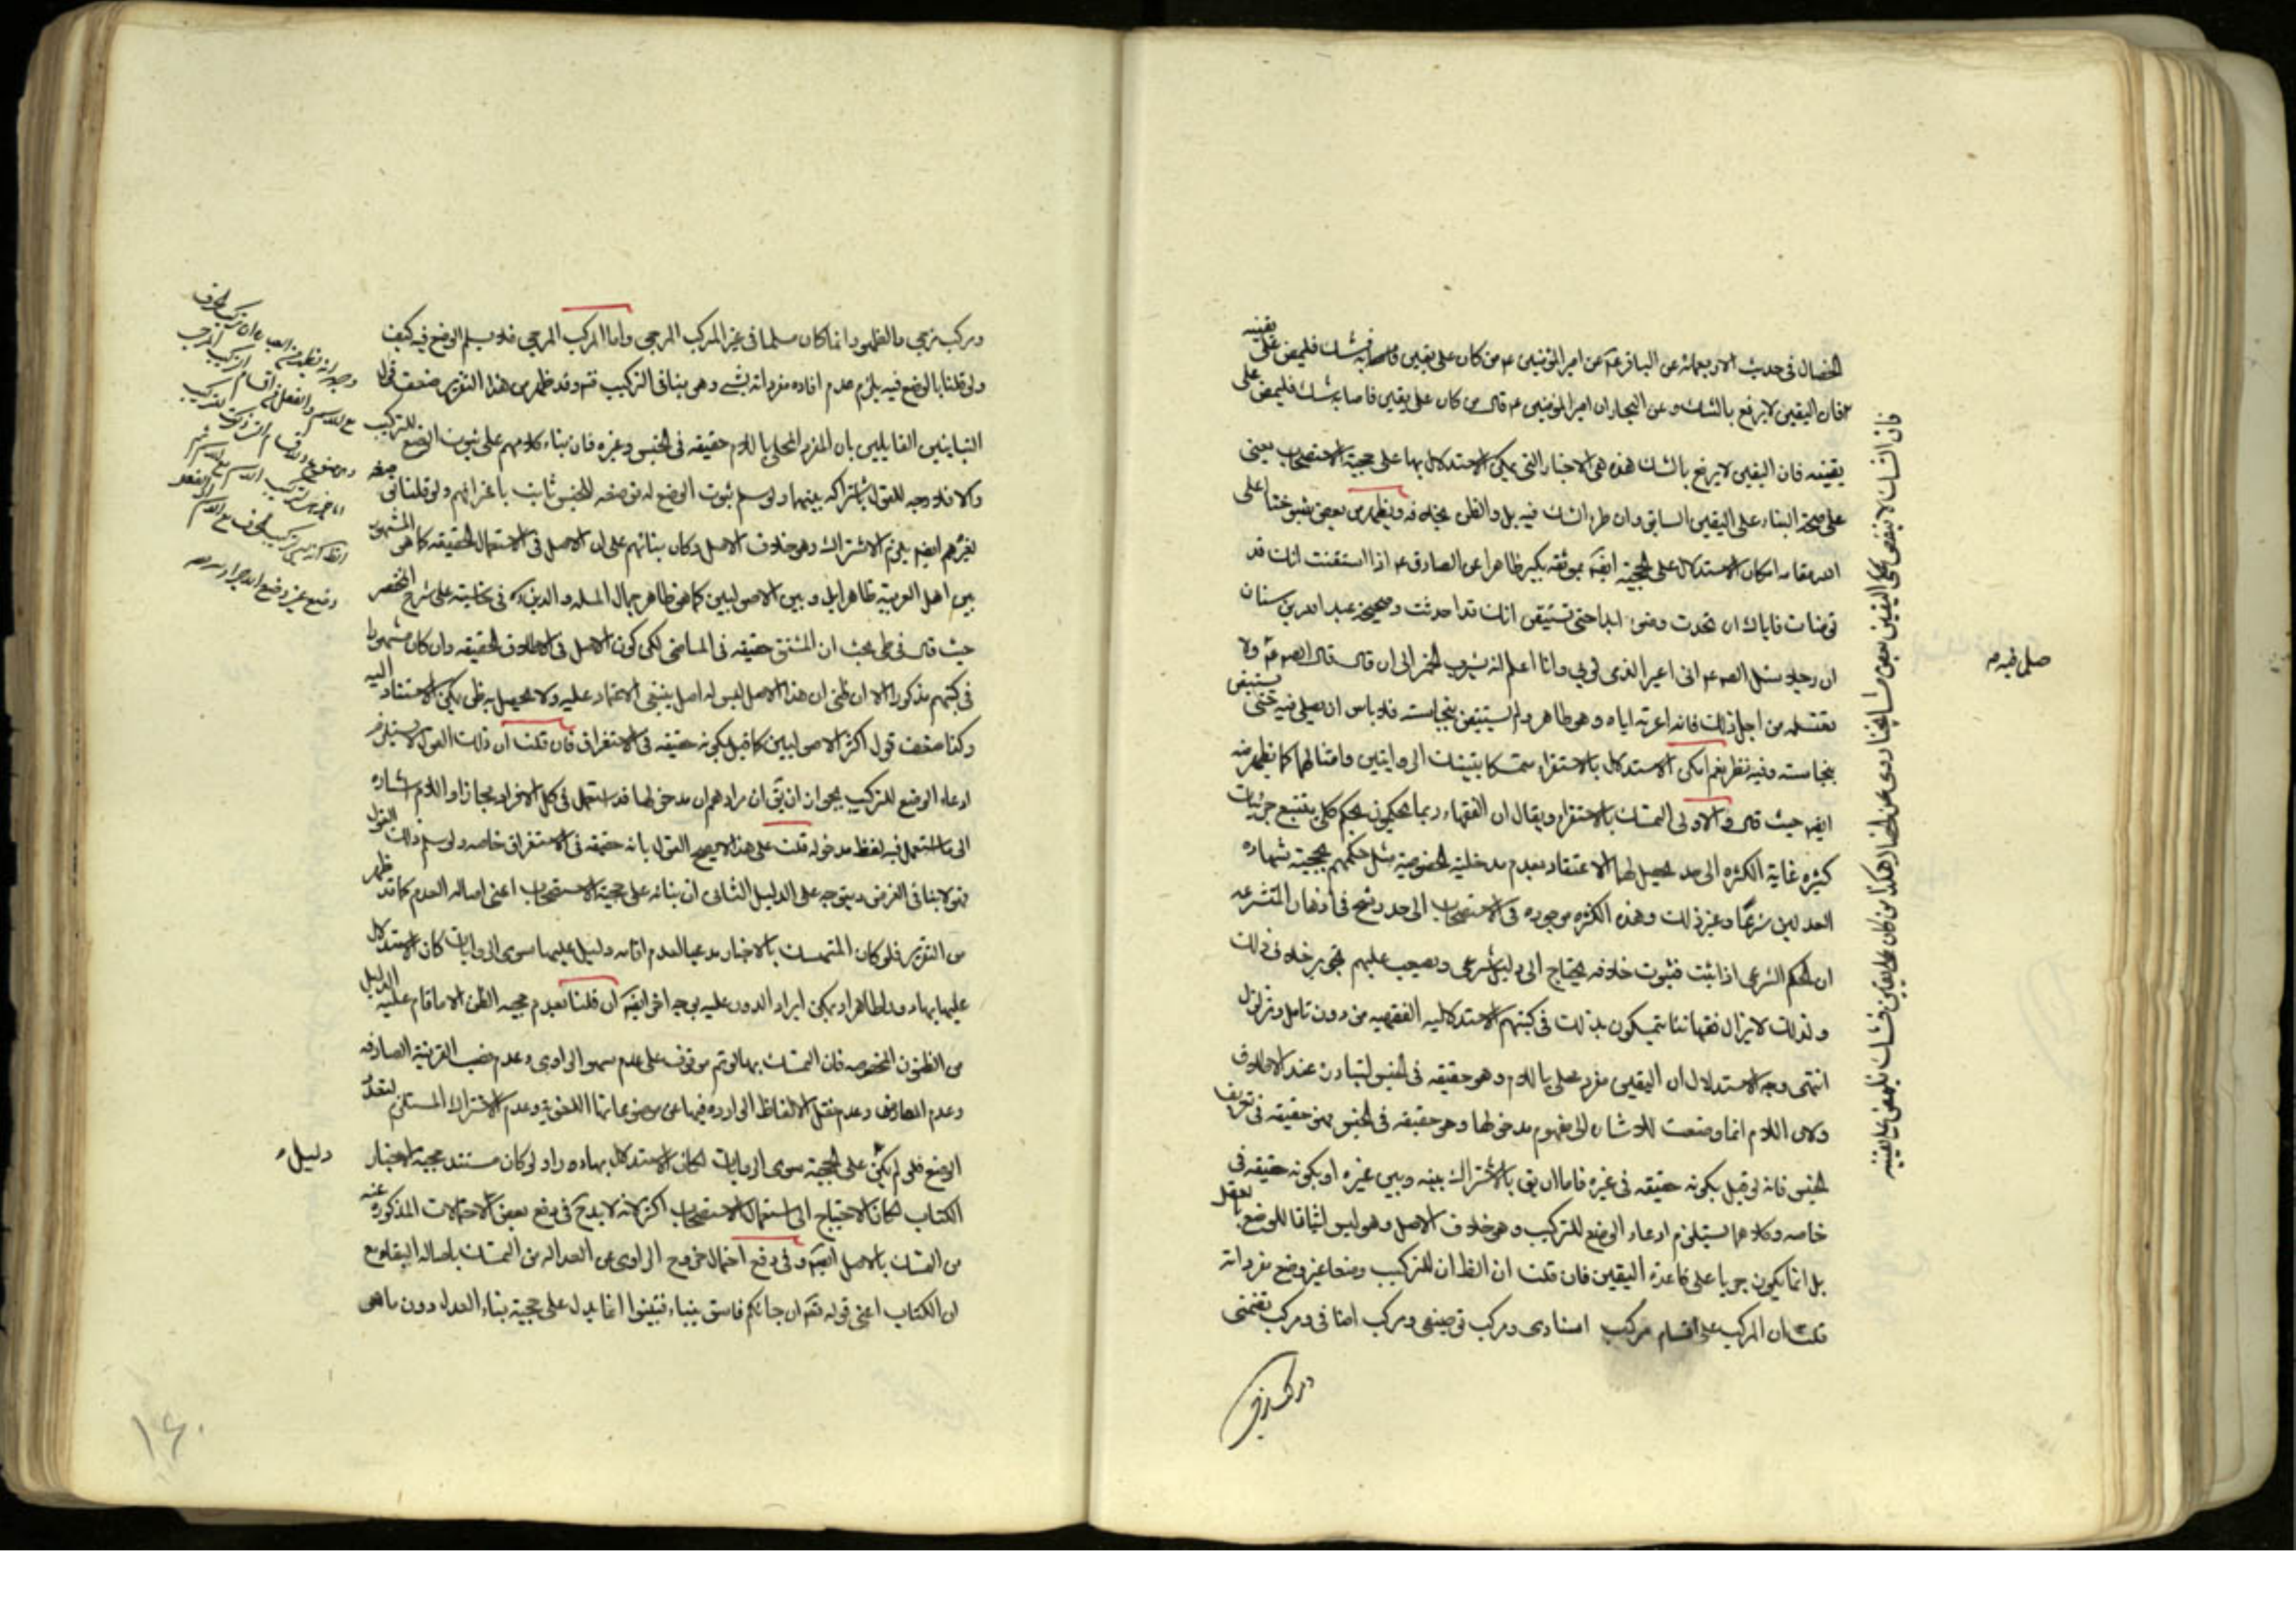 الخصال فى حديث الاربعمائة عن الباقر عم عن امير المؤمنين ع من كان على يقين فاصابه شك فليمض على يقينه
فان اليقين لا يرفع بالشك وعن البحار ان امير المؤمنين ع قال من كان على يقين فاصابه شك فليمض على
يقينه فان اليقين لا يرفع بالشك هذه هى الاخبار التى يمكن الاستدلال بها على حجية الاستصحاب يعنى
على صحة البناء على اليقين السابق وان طرء الشك فيه بل والظن بخلافه ويظهر من بعض مشايخنا اعلى
الله مقامه امكان الاستدلال على الحجية ايضا بموثقة بكير ظاهرا عن الصادق ع اذا استيقنت انك قد
توضات فاياك ان تحدث وضوء ابدا حتى تستيقن انك قد احدثت وصحيحة عبد الله بن سنان
ان رجلا سئل الصم ع انى اعير الذمى ثوبى وانا اعلم انه يشرب الخمر الى ان قال قال الصم ع ولا
تغسله من اجل ذلك فانه اعرته اياه وهو طاهر ولم تستيقن بنجاسته فلا باس ان يصلى فيه حتى يستيقن
بنجاسته وفيه نظر نعم يمكن الاستدلال بالاستقراء متمسكا بتينك الروايتين وامثالهما كما يظهر منه
ايضا حيث قال والاولى التمسك بالاستقراء ويقال ان الفقهاء ربما يحكمون بحكم كلى بتتبع جزئيات
كثيره غاية الكثره الى حد يحصل لها الاعتقاد بعدم مدخلية الخصوصية مثل حكمهم بحجية شهاده
العدلين شرعا وغير ذلك وهذه الكثره موجوده فى الاستصحاب الى حد رسخ فى اذهان المتشرعه
ان الحكم الشرعى اذا ثبت فثبوت خلافه يحتاج الى دليل شرعى ويصعب عليهم تجويز خلاف ذلك
ولذلك لا يزال فقهائنا يتمسكون بذلك فى كتبهم الاستدلاليه الفقهيه من دون تامل وتزلزل
انتهى وجه الاستدلال ان اليقين مفرد محلى باللام وهو حقيقه فى الجنس لتبادره عند الاطلاق
ولان اللام انما وضعت للاشاره الى مفهوم مدخولها وهو حقيقه فى الجنس فهو حقيقه فى تعريف
الجنس فانه لو قيل بكونه حقيقه فى غيره فاما ان يق بالاشتراك بينه وبين غيره او بكونه حقيقه فى
خاصه وكلاهما يستلزم ادعاء الوضع للتركيب وهو خلاف الاصل وهو ليس اثباتا للوضع بالعقل
بل انما يكون جريا على قاعدة اليقين فان قلت ان الظ ان للتركيب وضعا غير وضع مفرداته
قلت ان المركب على اقسام مركب اسنادى ومركب توصيفى ومركب اضافى ومركب تضمنى
صلى فيه م
ومركب مزجى والظهور انما كان مسلما فى غير المركب المزجى واما المركب المزجى فلا يسلم الوضع فيه كيف
ولو قلنا بالوضع فيه يلزم عدم افاده مفرداته بشئ وهى ينافى التركيب فتم وقد ظهر من هذا التقرير ضعف قول
البيانيين القايلين بان المفرد المحلى باللام حقيقه فى الجنس وغيره فان بناء كلامهم على ثبوت الوضع للتركيب
والا فلا وجه للقول باشتراكه بينهما ولو سلم ثبوت الوضع له فوضعه للجنس ثابت باعترافهم ولو قلنا فى
لغيرهم ايضا يلزم الاشتراك وهو خلاف الاصل وكان بنائهم على ان الاصل فى الاستعمال الحقيقه كما هى المشهور
بين اهل العربية ظاهرا بل وبين الاصوليين كما هى ظاهر جمال المله والدين ره فى حاشيته على شرح المختصر
حيث قال فى طى بحث ان المشتق حقيقه فى الماضى لكن كون الاصل فى الاطلاق الحقيقه وان كان مشهورا
فى كتبهم مذكورا الا ان ظنى ان هذا الاصل ليس له اصل ينبغى الاعتماد عليه ولا يحصل به ظن يمكن الاستناد اليه
وكذا ضعف قول اكثر الاصوليين كما قيل بكونه حقيقه فى الاستغراق فان قلت ان ذلك القول لا يستلزم
ادعاء الوضع للتركيب بجواز ان يق ان مرادهم ان مدخولها قد استعمل فى كل الافراد مجازا واللام اشاره
الى ما استعمل فيه لفظ مدخوله قلت على هذا لا يصح القول بانه حقيقه فى الاستغراق خاصه ولو سلم ذلك القول
فهو لا ينافى الغرض ويتوجه على الدليل الثانى ان بنائه على حجية الاستصحاب اعنى اصالة العدم كما قد ظهر
من التقرير فلو كان المتمسك بالاخبار مدعيا لعدم اقامه دليل عليها سوى الروايات كان الاستدلال
عليها بها دورا ظاهرا ويمكن ايراد الدور عليه بوجه اخر ايضا ان قلنا بعدم حجيه الظن الا ما قام عليه الدليل
من الظنون المخصوصه فان التمسك بها لو تم موقوف على عدم سهو الراوى وعدم نصب القرينة الصارفه
وعدم المعارض وعدم نقل الالفاظ الوارده فيها عن موضوعاتها اللغوية وعدم الاشتراك المستلزم لتعدد
الوضع فلو لم يكن على الحجية سوى الروايات لكان الاستدلال بها دورا ولو كان مستند حجية الاخبار
الكتاب لكان الاحتياج الى استعمال الاستصحاب اكثر لانه لا بد ح فى دفع بعض الاحتمالات المذكوره عنه
من التمسك بالاصل ايضا وفى دفع احتمال خروج الراوى عن العداله من التمسك باصاله البقاء مع
ان الكتاب اعنى قوله تعم ان جائكم فاسق بنباء فتبينوا انما يدل على حجية بناء العدل دون ما هى
دليل م
١٤٠